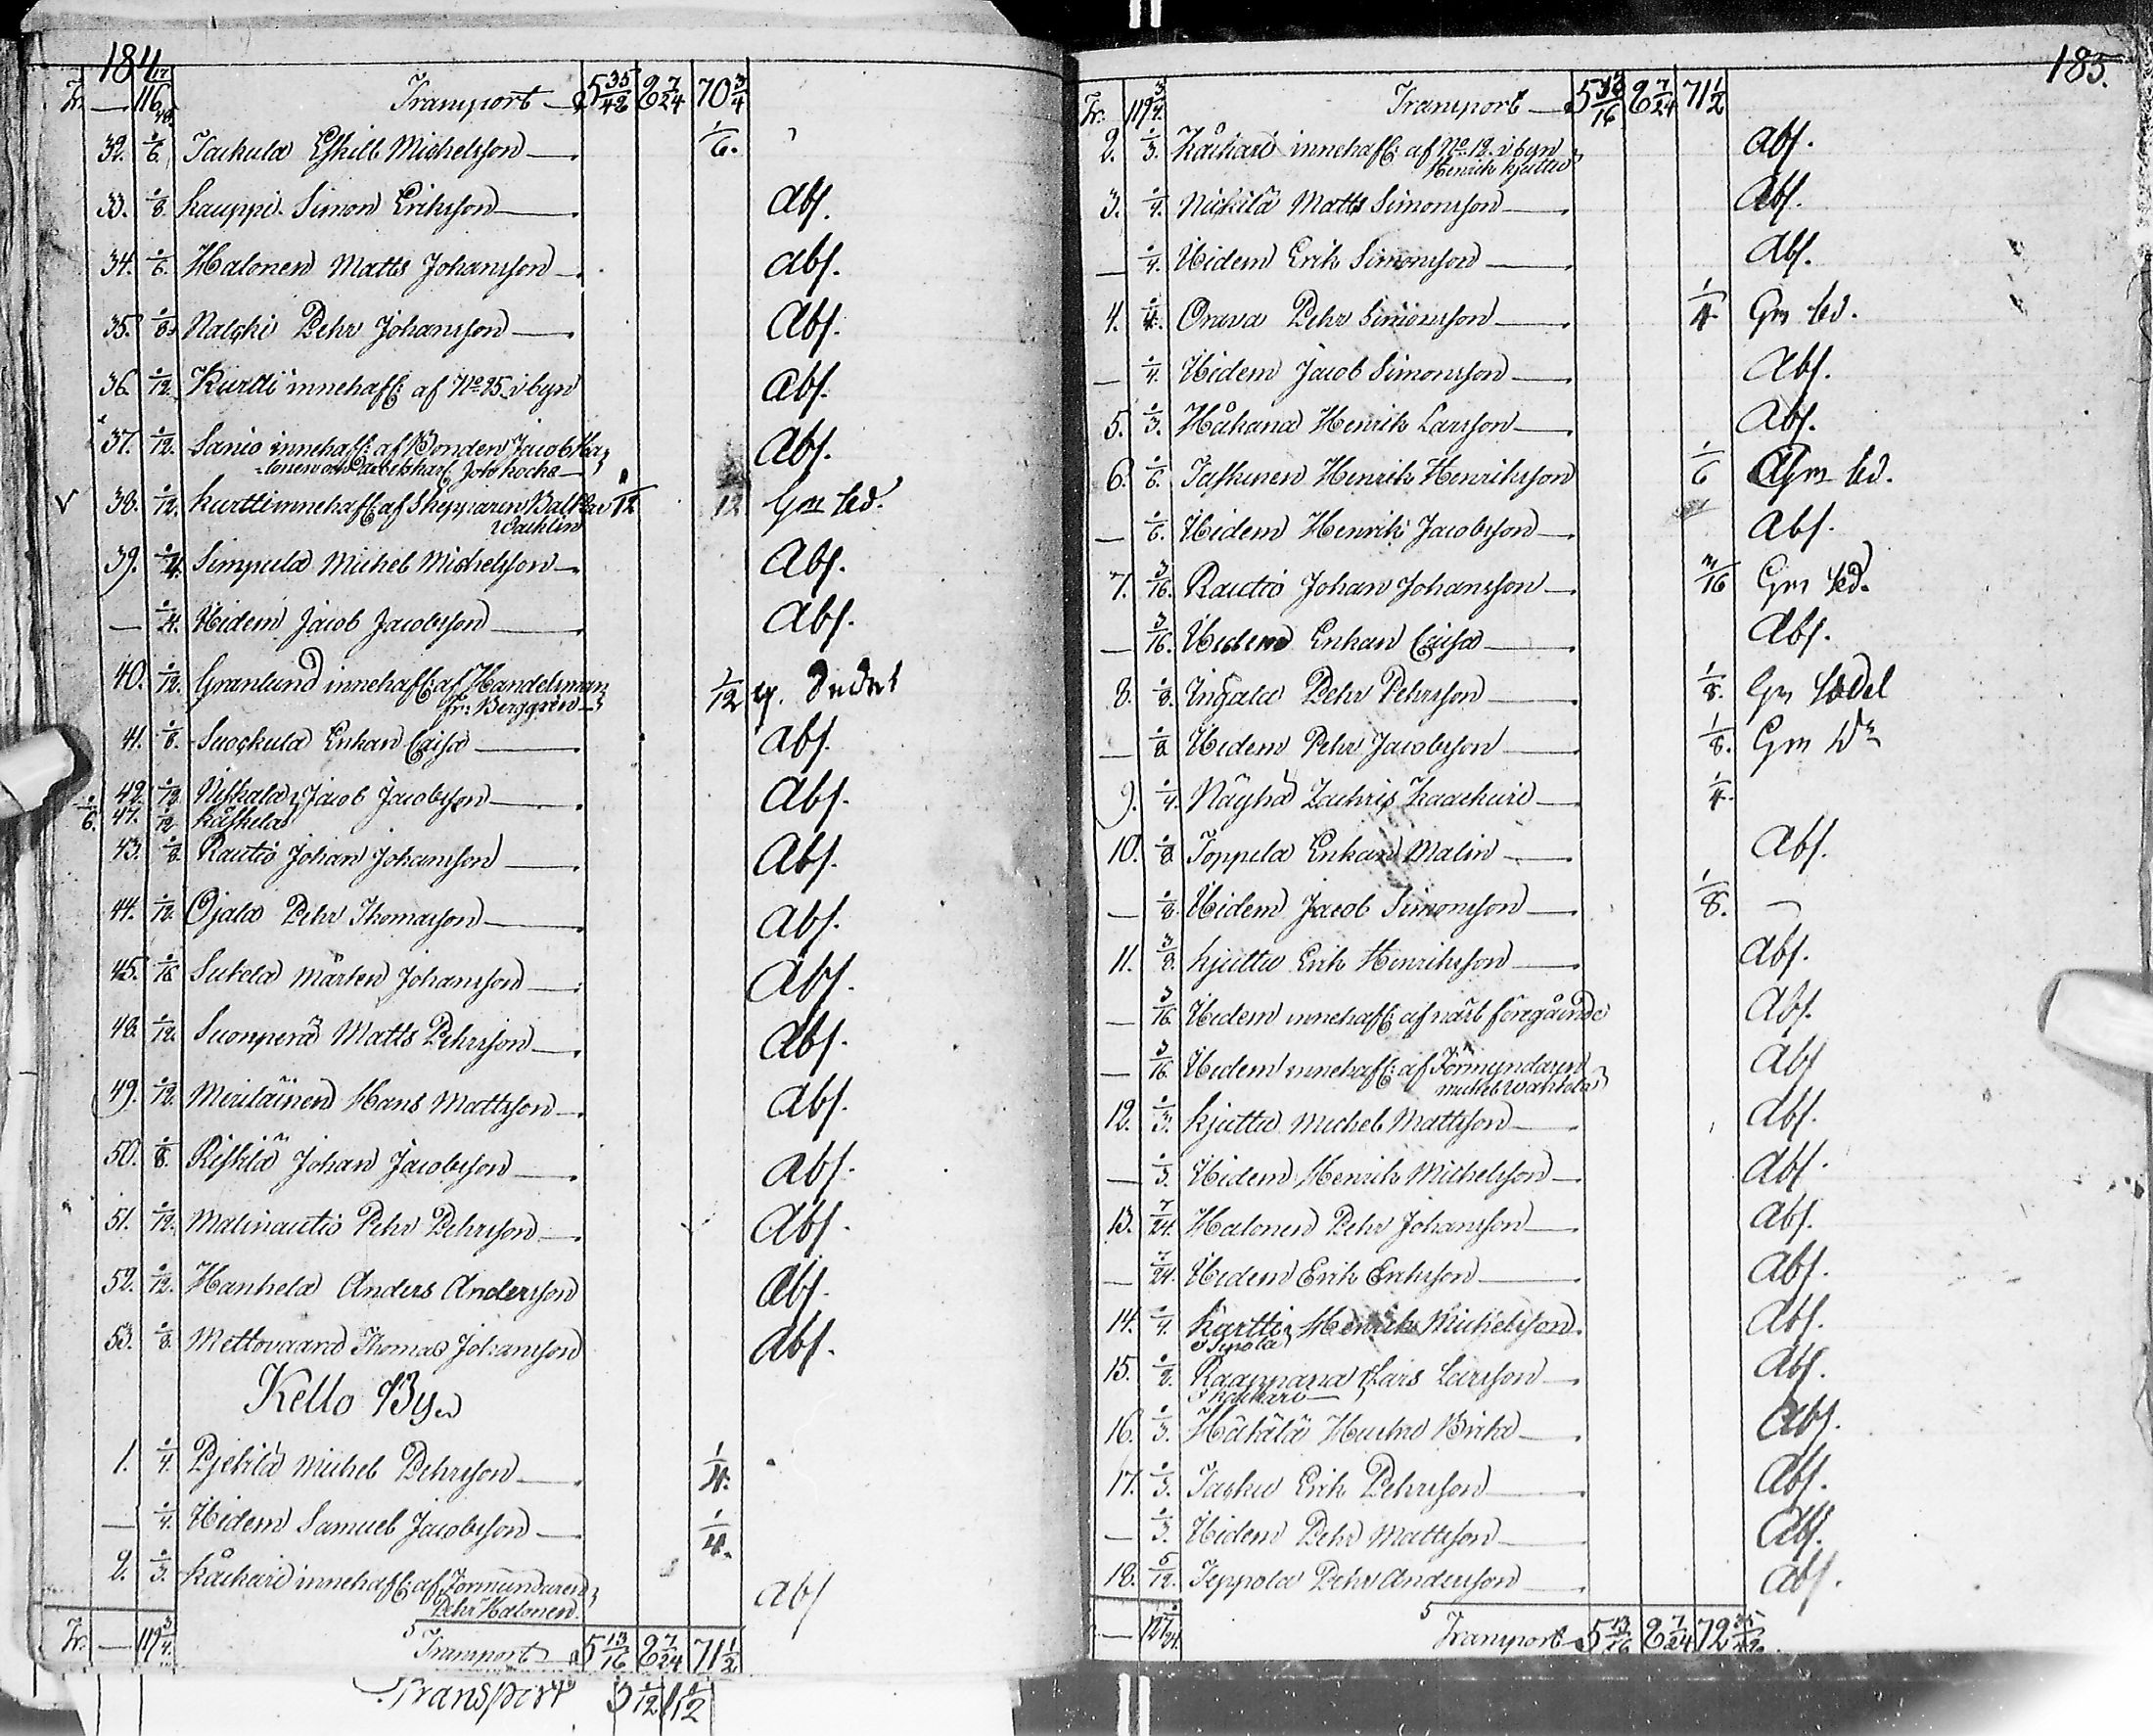 184
Tr. — 116 17/48 Transport — 5 35/48 2 7/24 70 3/4
32. 1/6. Taskula Eskill Michelsson — 1/6.
33. 1/8. Kauppi Simon Eriksson — Abs.
34. 1/6. Halonen Matts Johansson — Abs.
35. 1/8. Nalski Pehr Johansson — Abs.
36. 1/12. Kurtti innehafs: af No 25 i byn Abs.
37. 1/12. Sanio innehafs: af Bonden Jacob Ha-
lonen Abs.
V 38. 1/12. Kurtti innehafs: af Skepparen Balthar 1/12 12 Gm led.
Wacklin
39. 1/4. Simpula Michel Michelsson — Abs.
— 1/4. Ibidem Jacob Jacobsson — Abs.
40. 1/12. Granlund innehafs: af Handelsman
Fr: Berggren — 1/12
41. 1/8. Suoskula Enkan Caisa — Abs.
42. 1/12. Niskala Jacob Jacobsson — Abs.
1/6. 47. 1/12 Kaskela
43. 1/8. Rautio Johan Johansson — Abs.
44. 1/12. Ojala Pehr Thomasson — Abs.
45. 1/16 Sukela Mårten Johansson — Abs.
48. 1/12. Suonperä Matts Pehrsson — Abs.
49. 1/12. Meriläinen Hans Mattsson — Abs.
50. 1/8. Riskilä Johan Jacobsson — Abs.
51. 1/12. Malinautio Pehr Pehrsson — Abs.
52. 1/12. Hanhela Anders Andersson Abs.
53. 1/8. Mettovaara Thomas Johansson Abs.
Kello By
1. 1/4. Pjekilä Michel Pehrsson — 1/4.
— 1/4. Ibidem Samuel Jacobsson — 1/4.
2. 1/3. Kåkari innehafs: af Förmyndaren
Pehr Halonen. Abs
Tr. — 119 3/4. Transport — 5 13/16 2 7/24 71 1/2
Transport
185.
Tr. 119 3/4. Transport — 5 13/16 2 7/24 71 1/2
2. 1/3. Kåkari innehafs: af No 12. i byn
Henrik Kjuttu Abs.
3. 1/4. Nickilä Matts Simonsson — Abs.
— 1/4. Ibidem Erik Simonsson — Abs.
4. 1/4. Orava Pehr Simonsson — 1/4 Gm led.
— 1/4. Ibidem Jacob Simonsson — Abs.
5. 1/3. Håkana Henrik Larsson — Abs.
6. 1/6. Taskinen Henrik Henriksson 1/6 Gm led.
— 1/6. Ibidem Henrik Jacobsson — Abs.
7. 3/16. Rautio Johan Johansson — 3/16 Gm led.
— 3/16. Ibidem Enkan Caisa — Abs.
8. 1/8. Ingala Pehr Pehrsson — 1/8. Gm
— 1/8 Ibidem Pehr Jacobsson — 1/8. Gm
9. 1/4. Näyhä Zachris Kaackuri — 1/4.
10. 1/8. Toppela Enkan Malin — Abs.
— 1/8. Ibidem Jacob Simonsson — 1/8. —
11. 3/8. Kjuttu Erik Henriksson — Abs.
— 3/16. Ibidem innehafs: af näst föregående Abs.
— 3/16. Ibidem innehafs: af Förmyndaren
Michel Wahkola Abs
12. 1/3. Kjuttu Michel Mattsson — Abs.
— 1/3. Ibidem Henrik Michelsson — Abs.
13. 7/24. Halonen Pehr Johansson — Abs.
— 7/24. Ibidem Erik Eriksson — Abs.
14. 1/4. Kurtti Henrik Michelsson. Abs.
15. 1/2. Raappana Lars Larsson — Abs.
16. 1/3. Häkälä Hustru Brita — Abs.
17. 1/3. Tasku Erik Pehrsson — Abs.
— 1/3. Ibidem Pehr Mattsson — Abs.
18. 5/12. Teppola Pehr Andersson — Abs.
— 127 Transport — 5 13/16 2 7/24 72 35/48